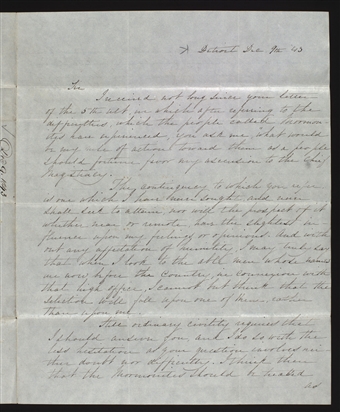 Detroit Dec 9th 43
Sir
I received not long since your letter
of the 5th ult. in which after referring to the
difficulties which the people called Mormon-
ites have experienced, you ask me, what would
be my rule of action toward them as a people
should fortune favor my ascension to the Chief
Magistracy.
The contingency to which you refer
is one which I have never sought, and never
shall seek to attain, nor will the prospect of it
whether near or remote, have the slightest in-
fluence upon my conduct or opinions. And with-
out any affectation of humility, I may truly say
that when I look to the able men whose names
are now before the Country, in connexion with
that high office, I cannot but think that the
selection will fall upon one of them, rather
than upon me.
Still ordinary civility requires that
I should answer you, and I do so with the
less hesitation, as your question involves nei-
ther doubt nor difficulty. I think then
that the Mormonites should be treated
as